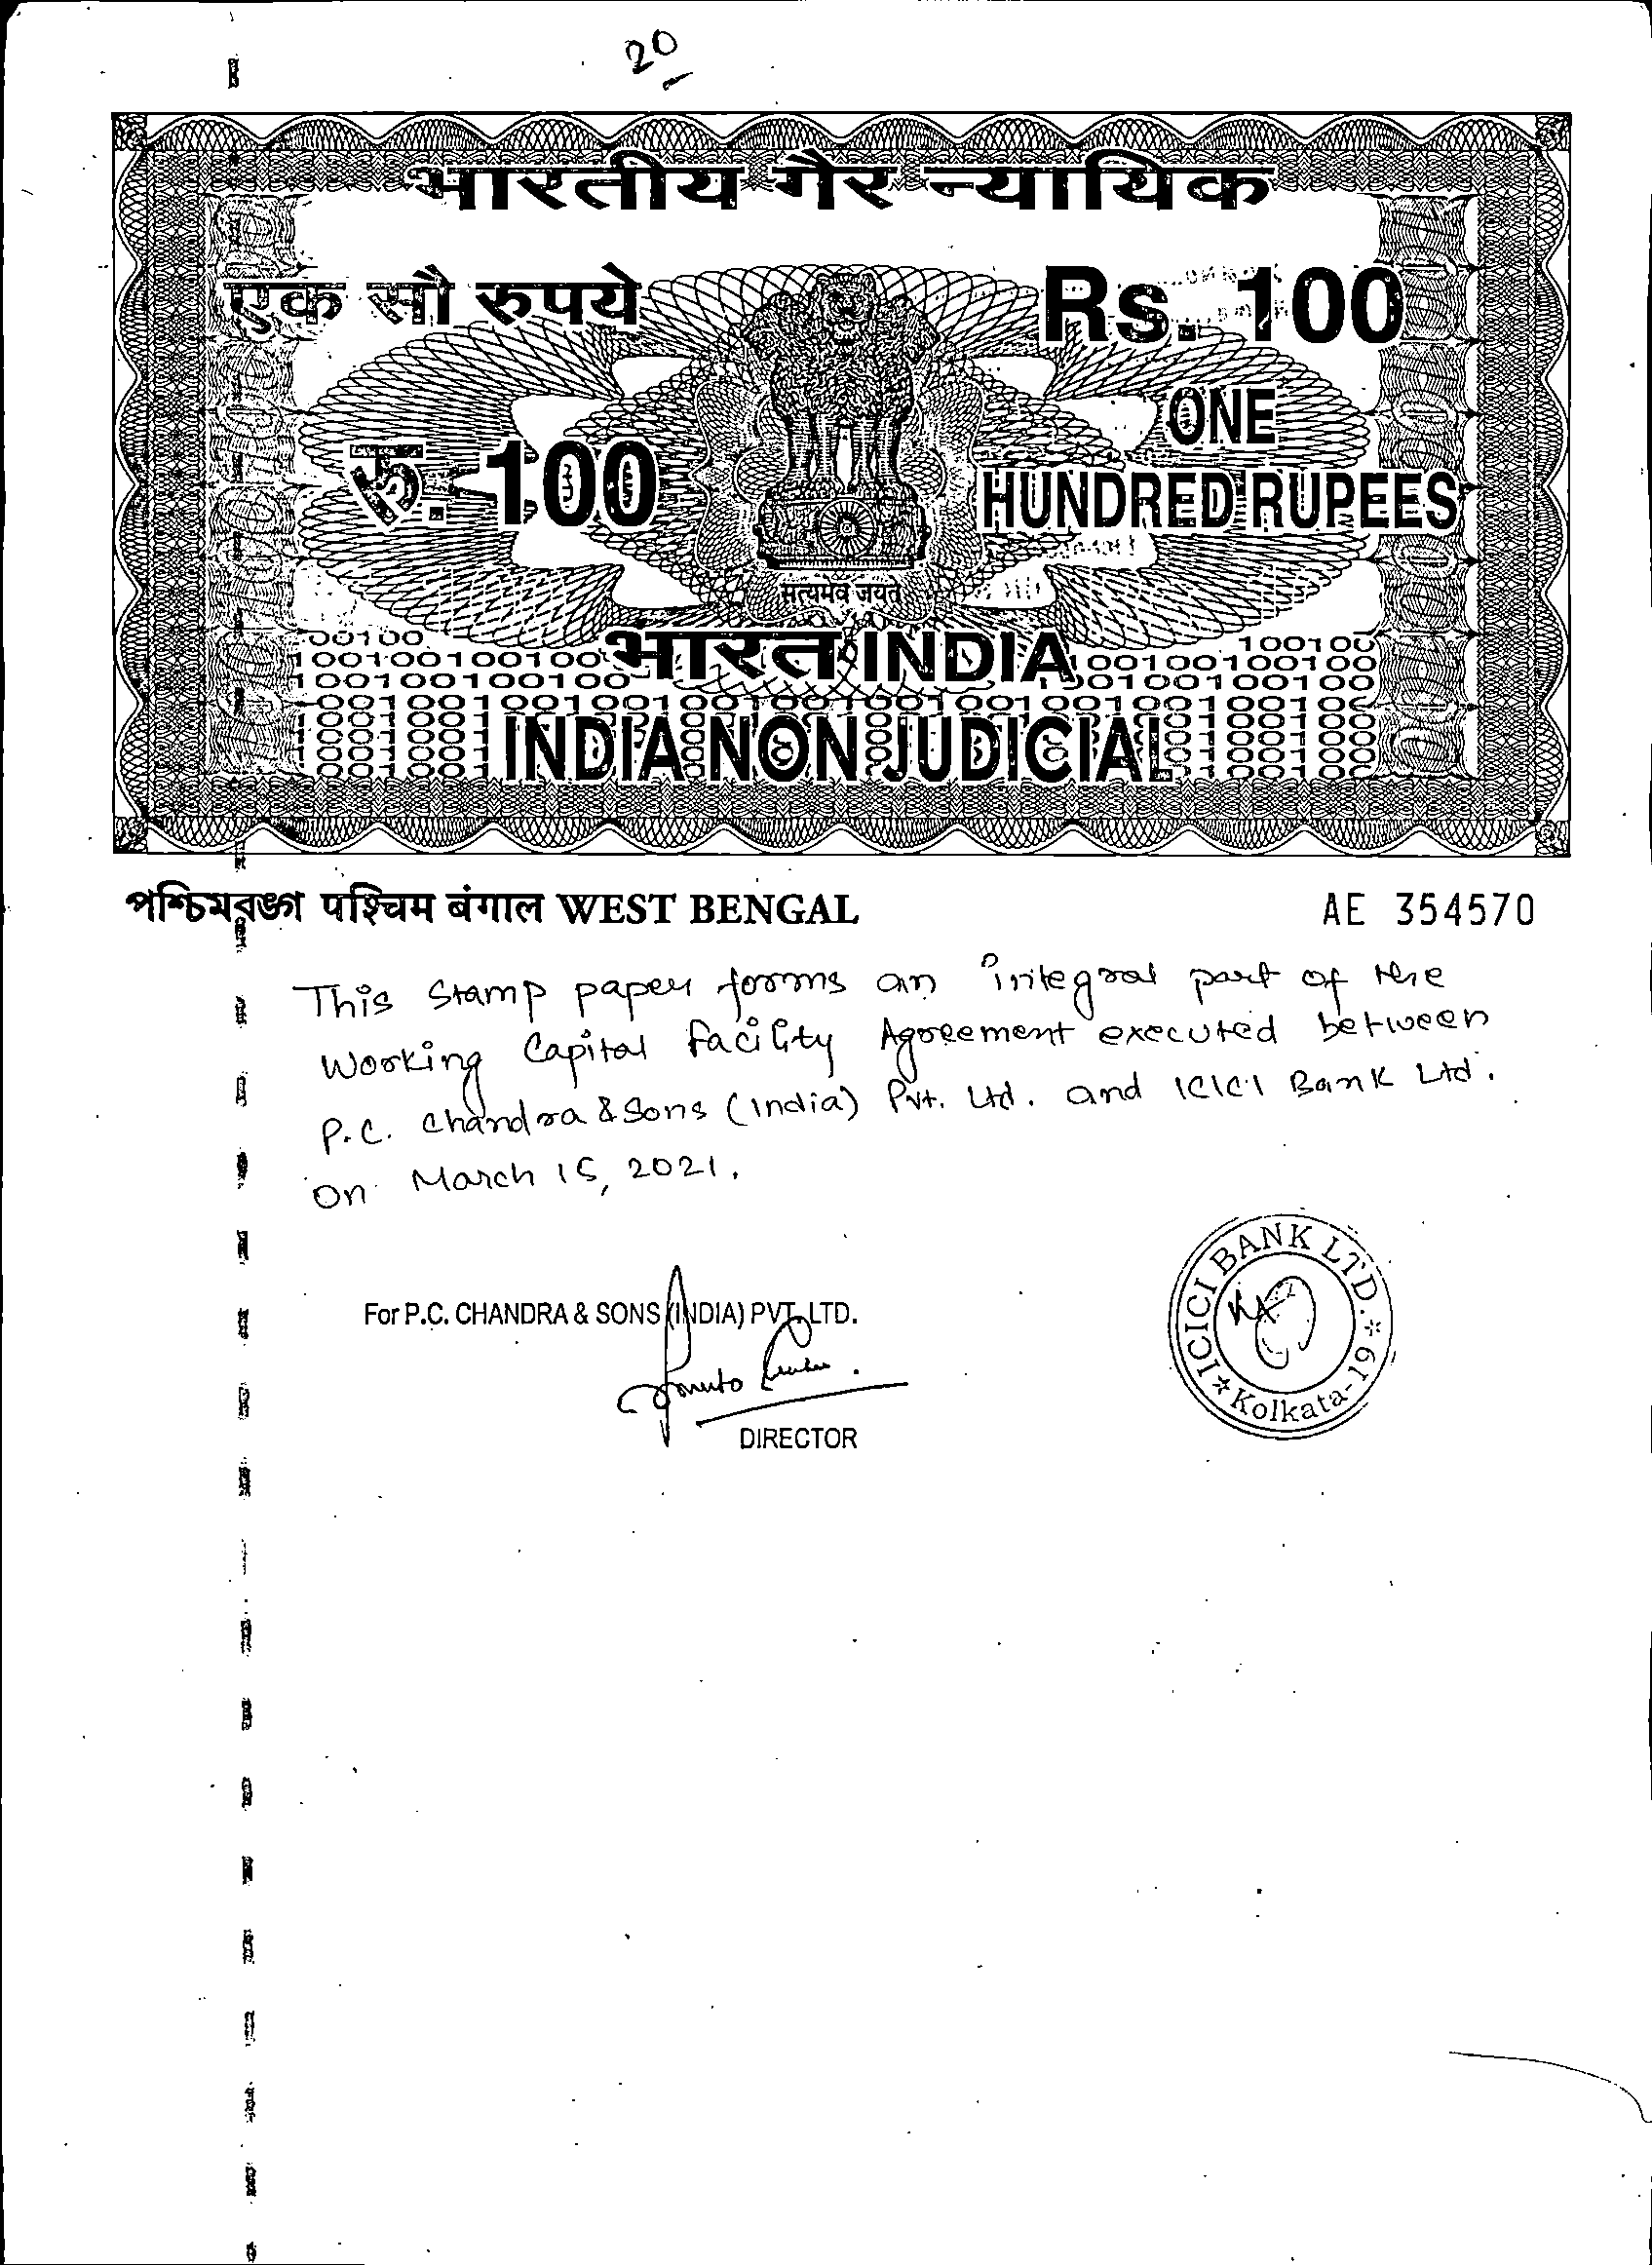 20
भारतीय गैर न्यायिक
एक सौ रुपये
Rs. 100
रु. 100
ONE
HUNDRED RUPEES
सत्यमेव जयते
भारत INDIA
INDIA NON JUDICIAL
পশ্চিমবঙ্গ पश्चिम बंगाल WEST BENGAL
AE 354570
This stamp paper forms an integral part of the
Working Capital Facility Agreement executed between
P.C. Chandra & Sons (India) Pvt. Ltd. and ICICI Bank Ltd.
on March 15, 2021.
For P.C. CHANDRA & SONS (INDIA) PVT. LTD.
DIRECTOR
ICICI BANK LTD.
* Kolkata-19 *